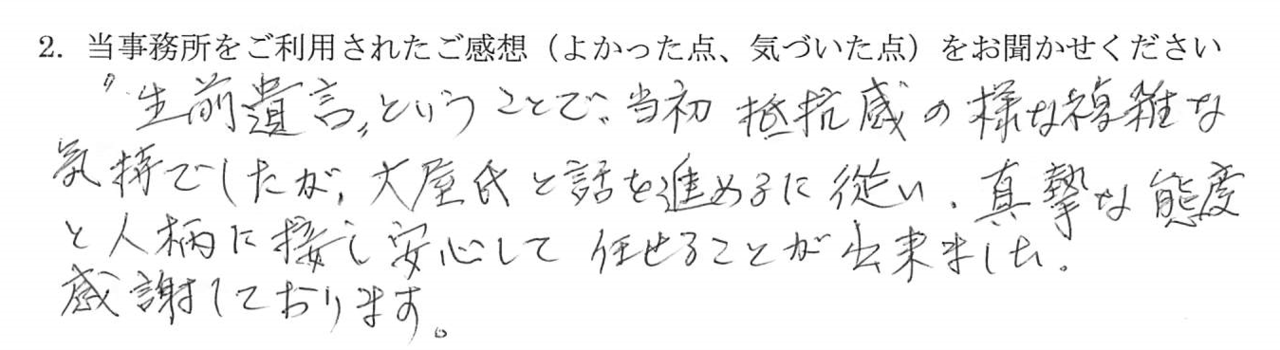 2. 当事務所をご利用されたご感想（よかった点、気づいた点）をお聞かせください
〝生前遺言〟ということで、当初 抵抗感の様な複雑な
気持でしたが、大屋氏と話を進めるに従い、真摯な態度
と人柄に接し安心して 任せることが出来ました。
感謝しております。